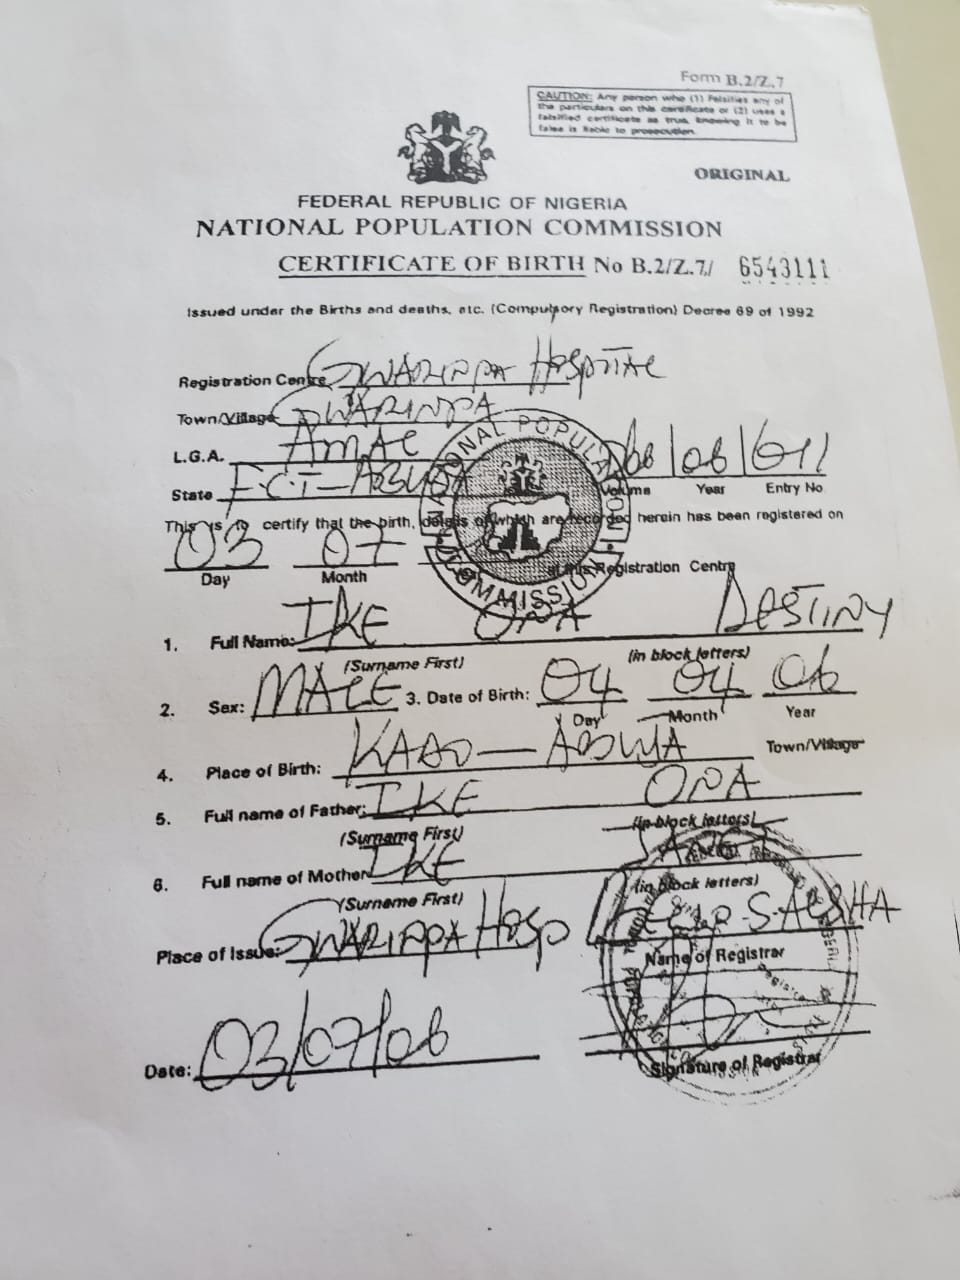 Form B.2/Z.7
CAUTION: Any person who (1) Falsifies any of
the particulars on this certificate or (2) uses a
falsified certificate as true, knowing it to be
false is liable to prosecution.
ORIGINAL
FEDERAL REPUBLIC OF NIGERIA
NATIONAL POPULATION COMMISSION
CERTIFICATE OF BIRTH No B.2/Z.7/ 6543111
Issued under the Births and deaths, etc. (Compulsory Registration) Decree 69 of 1992
Registration Centre GWARIPPA HOSPITAL
Town/Village GWARINPA
L.G.A. AMAC
State F.C.T - ABUJA
06 011
Volume Year Entry No
This is to certify that the birth, details of which are recorded herein has been registered on
03 07
Day Month
at this Registration Centre
NATIONAL POPULATION COMMISSION
1. Full Name: IKE ONA DESTINY
(Surname First) (in block letters)
2. Sex: MALE 3. Date of Birth: 04 04 06
Day Month Year
4. Place of Birth: ABUJA Town/Village
5. Full name of Father: IKE ONA
(Surname First) (in block letters)
6. Full name of Mother IKE
(Surname First) (in block letters)
Place of Issue: GWARIPPA HOSP
Name of Registrar
Date: 03/07/06
Signature of Registrar